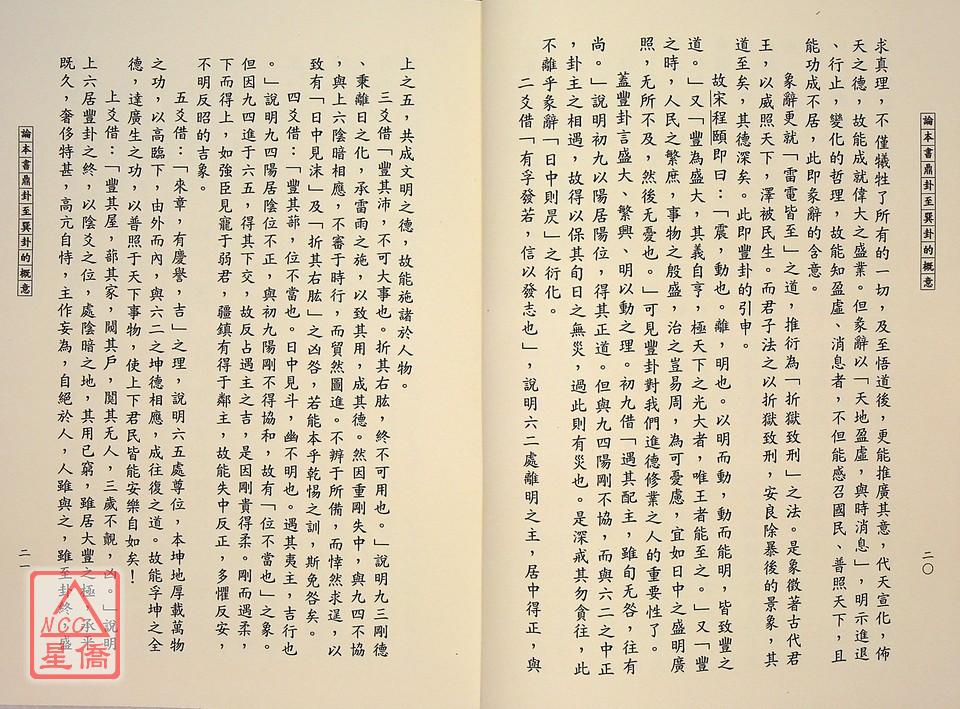 論本書鼎卦至巽卦的概意
求真理，不僅犧牲了所有的一切，及至悟道後，更能推廣其意，代天宣化，佈
天之德，故能成就偉大之盛業。但彖辭以「天地盈虛，與時消息」，明示進退
、行止，變化的哲理，故能知盈虛、消息者，不但能感召國民、普照天下，且
能功成不居，此即彖辭的含意。
象辭更就「雷電皆至」之道，推衍為「折獄致刑」之法。是象徵著古代君
王，以威照天下，澤被民生。而君子法之以折獄致刑，安良除暴後的景象，其
道至矣，其德深矣。此即豐卦的引申。
故宋程頤即曰：「震，動也。離，明也。以明而動，動而能明，皆致豐之
道。」又「豐為盛大，其義自亨，極天下之光大者，唯王者能至之。」又「豐
之時，人民之繁庶，事物之殷盛，治之豈易周，為可憂慮，宜如日中之盛明廣
照，無所不及，然後无憂也。」可見豐卦對我們進德修業之人的重要性了。
蓋豐卦言盛大、繁興、明以動之理。初九借「遇其配主，雖旬无咎，往有
尚。」說明初九以陽居陽位，得其正道。但與九四陽剛不協，而與六二之中正
，卦主之相遇，故得以保其旬日之無災，過此則有災也。是深戒其勿貪往，此
不離乎象辭「日中則昃」之衍化。
二爻借「有孚發若，信以發志也」，說明六二處離明之主，居中得正，與
二〇
論本書鼎卦至巽卦的概意
上之五，共成文明之德，故能施諸於人物。
三爻借「豐其沛，不可大事也。折其右肱，終不可用也。」說明九三剛德
、秉離日之化，承雷雨之施，以致其用，成其德。然因重剛失中，與九四不協
，與上六陰暗相應，不審于時行，而貿然圖進。不辨于所備，而悻然求逞，以
致有「日中見沫」及「折其右肱」之凶咎，若能本乎乾惕之訓，斯免咎矣。
四爻借：「豐其蔀，位不當也。日中見斗，幽不明也。遇其夷主，吉行也
。」說明九四陽居陰位不正，與初九陽剛不得協和，故有「位不當也」之象。
但因九四進于六五，得其下交，故反占遇主之吉，是因剛貴得柔。剛而遇柔，
下而得上，如強臣見寵于弱君，疆鎮有得于鄰主，故能失中反正，多懼反安，
不明反昭的吉象。
五爻借：「來章，有慶譽，吉」之理，說明六五處尊位，本坤地厚載萬物
之功，以高臨下，由外而內，與六二之坤德相應，成往復之道。故能孚坤之全
德，達廣生之功，以普照于天下事物，使上下君民皆能安樂自如矣！
上爻借：「豐其屋，蔀其家，闚其戶，闃其无人，三歲不覿，凶。」說明
上六居豐卦之終，以陰爻之位，處陰暗之地，其用已窮，雖居大豐之極，承光
既久，奢侈特甚，高亢自恃，主作妄為，自絕於人，人雖與之，雖至卦終，盛
二一
NCC
星僑